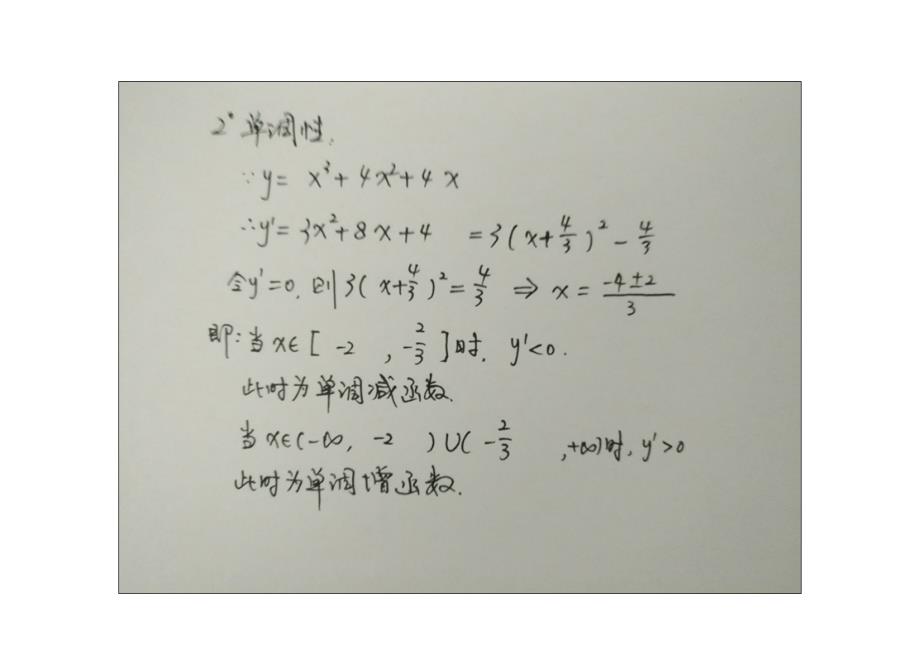 2° 单调性.
∵y= x³+4x²+4x
∴y'=3x²+8x+4 =3(x+4/3)²-4/3
令y'=0, 则3(x+4/3)²=4/3 ⇒ x=(-4±2)/3
即:当x∈[-2,-2/3]时, y'<0.
此时为单调减函数.
当x∈(-∞,-2)∪(-2/3,+∞)时, y'>0
此时为单调增函数.